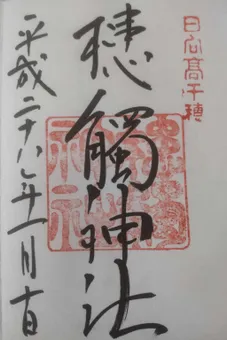 日向高千穂
槵觸神社
平成二十八年十一月十日